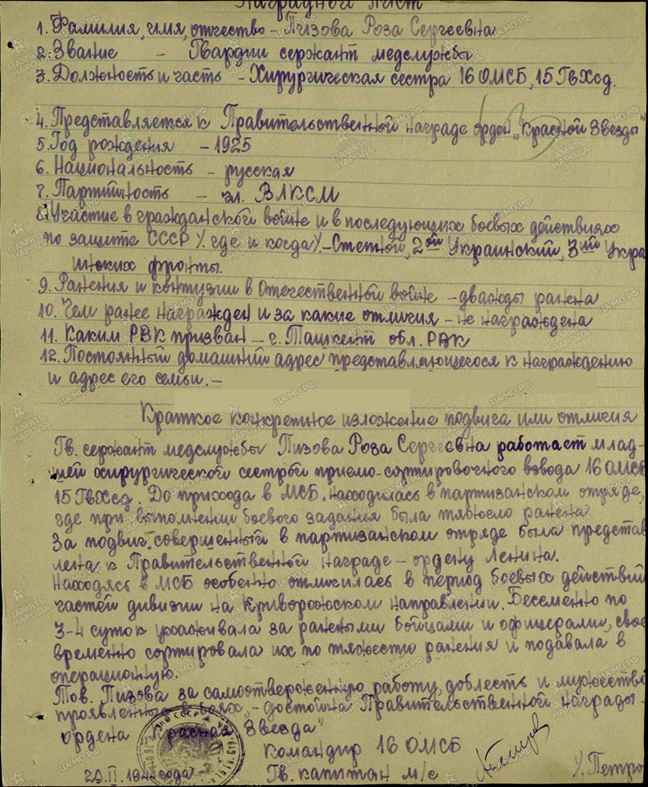 Наградной лист
1. Фамилия, имя, отчество - Пизова Роза Сергеевна
2. Звание - Гвардии сержант медслужбы
3. Должность и часть - Хирургическая сестра 16 ОМСБ, 15 ГвХсд.
4. Представляется к Правительственной награде орден „Красной Звезды"
5. Год рождения - 1925
6. Национальность - русская
7. Партийность - чл. ВЛКСМ
8. Участие в гражданской войне и в последующих боевых действиях
по защите СССР /где и когда/ - Степной, 2ой Украинский, 3ий Укра
инских фронты.
9. Ранения и контузии в Отечественной войне - дважды ранена
10. Чем ранее награжден и за какие отличия - не награждена
11. Каким РВК призван - г. Ташкент обл. РВК
12. Постоянный домашний адрес представляющегося к награждению
и адрес его семьи. -
Краткое конкретное изложение подвига или отличия
Гв. сержант медслужбы Пизова Роза Сергеевна работает млад-
шей хирургической сестрой приемо-сортировочного взвода 16 ОМСБ
15 ГвХсд. До прихода в МСБ, находилась в партизанском отряде,
где при выполнении боевого задания была тяжело ранена
За подвиг, совершенный в партизанском отряде была представ
лена к Правительственной награде - ордену Ленина.
Находясь в МСБ особенно отличилась в период боевых действий
частей дивизии на Криворожском направлении. Бессменно по
3-4 суток ухаживала за ранеными бойцами и офицерами, свое
временно сортировала их по тяжести ранения и подавала в
операционную.
Тов. Пизова за самоотверженную работу, доблесть и мужество
проявленные в боях, - достойна Правительственной награды -
ордена „Красная Звезда"
Командир 16 ОМСБ
29.II.1944 года Гв. капитан м/с /Петро